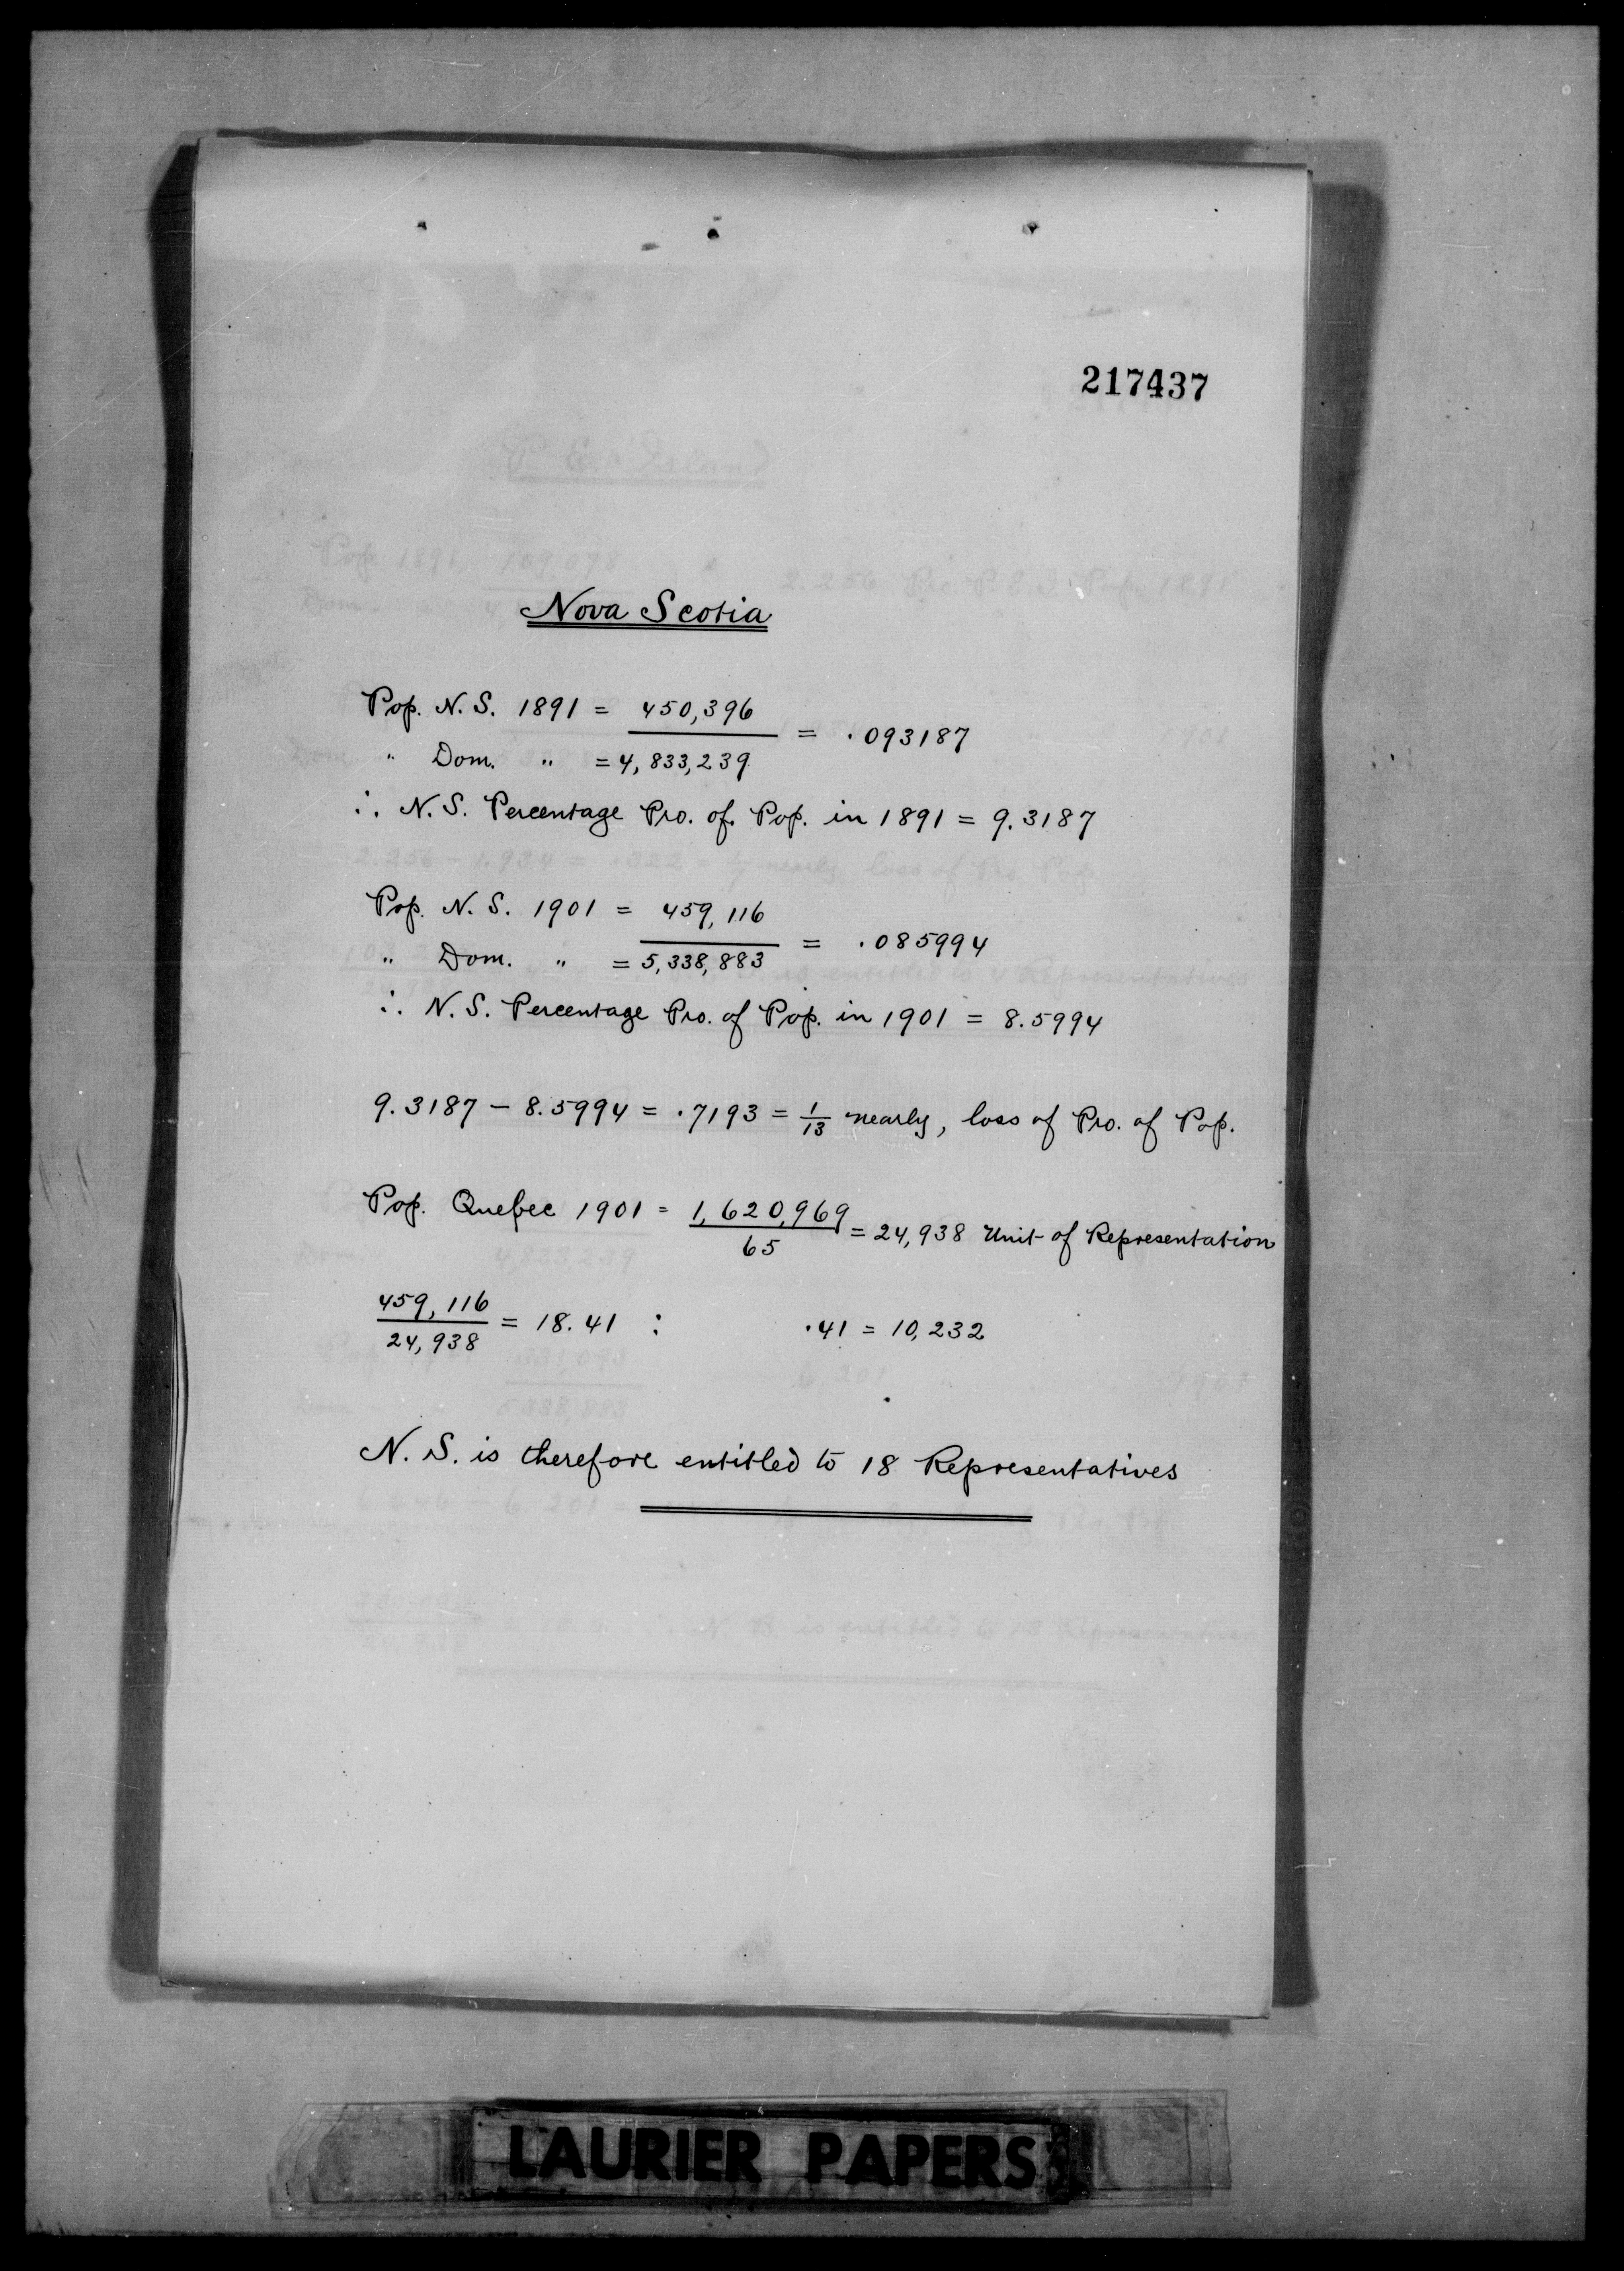 217437
Nova Scotia
Pop. N. S. 1891 = 450,396
= .093187
" Dom. " = 4,833,239
∴ N. S. Percentage Pro. of Pop. in 1891 = 9.3187
Pop. N. S. 1901 = 459,116
= .085994
" Dom. " = 5,338,883
∴ N. S. Percentage Pro. of Pop. in 1901 = 8.5994
9.3187 - 8.5994 = .7193 = 1/13 nearly, loss of Pro. of Pop.
Pop. Quebec 1901 = 1,620,969
65 = 24,938 Unit of Representation
459,116
24,938 = 18.41 : .41 = 10,232
N. S. is therefore entitled to 18 Representatives
LAURIER PAPERS